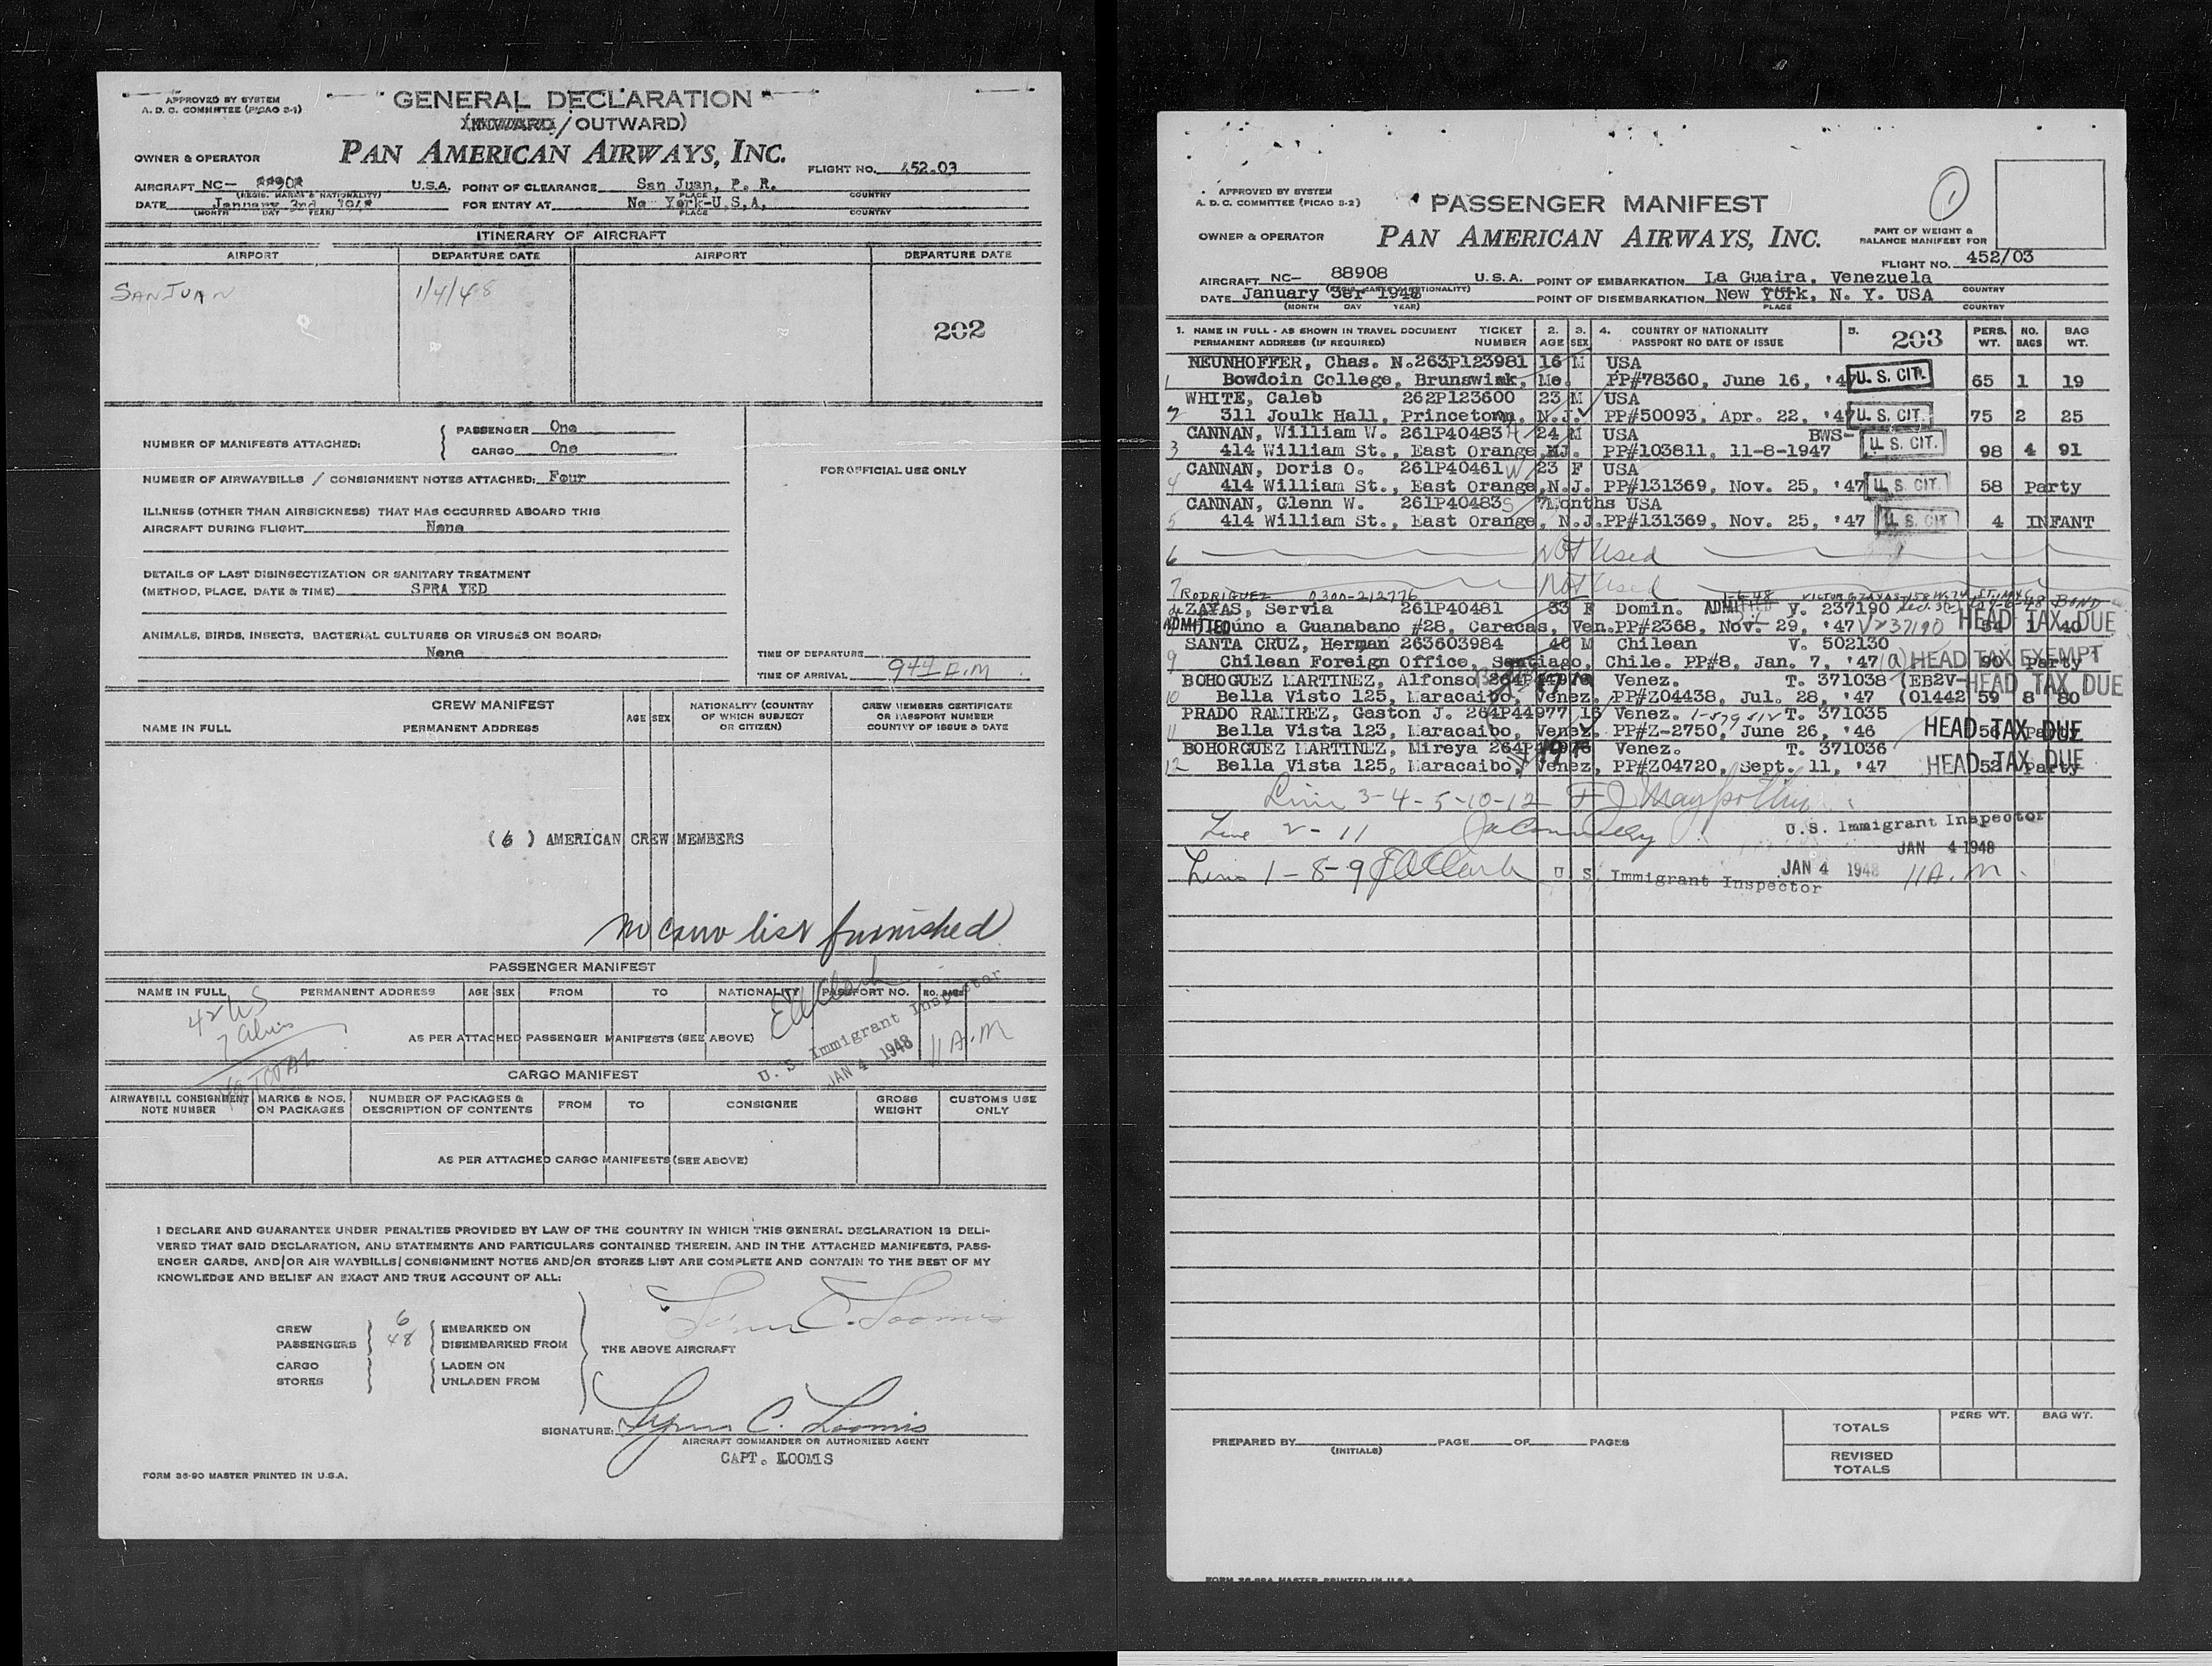 APPROVED BY SYSTEM
A. D. C. COMMITTEE (PICAO S-1)
GENERAL DECLARATION
(INWARD/OUTWARD)
PAN AMERICAN AIRWAYS, INC.
OWNER & OPERATOR
FLIGHT NO. 452.03
AIRCRAFT NC- 88908 U.S.A. POINT OF CLEARANCE San Juan, P. R.
(REGIS. MARKS & NATIONALITY) PLACE COUNTRY
DATE January 3rd 1948 FOR ENTRY AT New York-U.S.A.
(MONTH DAY YEAR) PLACE COUNTRY
ITINERARY OF AIRCRAFT
AIRPORT DEPARTURE DATE AIRPORT DEPARTURE DATE
SAN JUAN 1/4/48
202
NUMBER OF MANIFESTS ATTACHED: PASSENGER One
CARGO One
FOR OFFICIAL USE ONLY
NUMBER OF AIRWAYBILLS / CONSIGNMENT NOTES ATTACHED: Four
ILLNESS (OTHER THAN AIRSICKNESS) THAT HAS OCCURRED ABOARD THIS
AIRCRAFT DURING FLIGHT None
DETAILS OF LAST DISINSECTIZATION OR SANITARY TREATMENT
(METHOD, PLACE, DATE & TIME) SPRA YED
ANIMALS, BIRDS, INSECTS, BACTERIAL CULTURES OR VIRUSES ON BOARD:
None
TIME OF DEPARTURE
TIME OF ARRIVAL 944 A.M
CREW MANIFEST
NAME IN FULL PERMANENT ADDRESS AGE SEX NATIONALITY (COUNTRY OF WHICH SUBJECT OR CITIZEN) CREW MEMBERS CERTIFICATE OR PASSPORT NUMBER COUNTRY OF ISSUE & DATE
(6) AMERICAN CREW MEMBERS
no crew list furnished
PASSENGER MANIFEST
NAME IN FULL PERMANENT ADDRESS AGE SEX FROM TO NATIONALITY PASSPORT NO. NO. BAGS
42 US
7 aliens
TOTAL
AS PER ATTACHED PASSENGER MANIFESTS (SEE ABOVE)
U. S. Immigrant Inspector
JAN 4 1948 11 A.M
CARGO MANIFEST
AIRWAYBILL CONSIGNMENT NOTE NUMBER MARKS & NOS. ON PACKAGES NUMBER OF PACKAGES & DESCRIPTION OF CONTENTS FROM TO CONSIGNEE GROSS WEIGHT CUSTOMS USE ONLY
AS PER ATTACHED CARGO MANIFESTS (SEE ABOVE)
I DECLARE AND GUARANTEE UNDER PENALTIES PROVIDED BY LAW OF THE COUNTRY IN WHICH THIS GENERAL DECLARATION IS DELI-
VERED THAT SAID DECLARATION, AND STATEMENTS AND PARTICULARS CONTAINED THEREIN, AND IN THE ATTACHED MANIFESTS, PASS-
ENGER CARDS, AND/OR AIR WAYBILLS/CONSIGNMENT NOTES AND/OR STORES LIST ARE COMPLETE AND CONTAIN TO THE BEST OF MY
KNOWLEDGE AND BELIEF AN EXACT AND TRUE ACCOUNT OF ALL:
Lynn C. Loomis
CREW 6 EMBARKED ON
PASSENGERS 48 DISEMBARKED FROM
THE ABOVE AIRCRAFT
CARGO LADEN ON
STORES UNLADEN FROM
SIGNATURE: Lynn C. Loomis
AIRCRAFT COMMANDER OR AUTHORIZED AGENT
CAPT. LOOMIS
FORM 36-90 MASTER PRINTED IN U.S.A.
1
APPROVED BY SYSTEM
A. D. C. COMMITTEE (PICAO S-2)
PASSENGER MANIFEST
OWNER & OPERATOR
PAN AMERICAN AIRWAYS, INC.
PART OF WEIGHT &
BALANCE MANIFEST FOR
FLIGHT NO. 452/03
AIRCRAFT NC- 88908 U.S.A. POINT OF EMBARKATION La Guaira, Venezuela
COUNTRY
DATE January 3er 1948 POINT OF DISEMBARKATION New York, N. Y. USA
(MONTH DAY YEAR) PLACE COUNTRY
1. NAME IN FULL - AS SHOWN IN TRAVEL DOCUMENT TICKET 2. 3. 4. COUNTRY OF NATIONALITY 5. 203 PERS. NO. BAG
PERMANENT ADDRESS (IF REQUIRED) NUMBER AGE SEX PASSPORT NO DATE OF ISSUE WT. BAGS WT.
NEUNHOFFER, Chas. N. 263P123981 16 M USA
1 Bowdoin College, Brunswick, Me. PP#78360, June 16, '47 U. S. CIT. 65 1 19
WHITE, Caleb 262P123600 23 M USA
2 311 Joulk Hall, Princeton, N.J. PP#50093, Apr. 22, '47 U. S. CIT. 75 2 25
CANNAN, William W. 261P40483 H 24 M USA BWS-
3 414 William St., East Orange, N.J. PP#103811, 11-8-1947 U. S. CIT. 98 4 91
CANNAN, Doris O. 261P40461 W 23 F USA
4 414 William St., East Orange, N.J. PP#131369, Nov. 25, '47 U. S. CIT. 58 Party
CANNAN, Glenn W. 261P40483 S 7Months USA
5 414 William St., East Orange, N.J. PP#131369, Nov. 25, '47 U. S. CIT 4 INFANT
6 Not Used
7 Not Used
RODRIGUEZ 0300-212776 1-6-48
de ZAYAS, Servia 261P40481 33 F Domin. ADMITTED V. 237190 BOND
ADMITTED a Guanabano #28, Caracas, Ven. PP#2368, Nov. 29, '47 V237190 HEAD TAX DUE 54 1 40
SANTA CRUZ, Herman 263603984 40 M Chilean V. 502130
9 Chilean Foreign Office, Santiago, Chile. PP#8, Jan. 7, '47 (a) HEAD TAX EXEMPT 90 Party
BOHOGUEZ MARTINEZ, Alfonso Venez. T. 371038 (EB2V-
10 Bella Visto 125, Maracaibo, Venez. PP#Z04438, Jul. 28, '47 (01442 HEAD TAX DUE 59 8 80
PRADO RAMIREZ, Gaston J. 264P44977 16 Venez. T. 371035
11 Bella Vista 123, Maracaibo, Venez. PP#Z-2750, June 26, '46 HEAD TAX DUE 56 Party
BOHORGUEZ MARTINEZ, Mireya Venez. T. 371036
12 Bella Vista 125, Maracaibo, Venez. PP#Z04720, Sept. 11, '47 HEAD TAX DUE 52 Party
Line 3-4-5-10-12
Line 2-11 U.S. Immigrant Inspector
JAN 4 1948
Lines 1-8-9 U S Immigrant Inspector JAN 4 1948 11 A.M.
TOTALS PERS WT. BAG WT.
PREPARED BY PAGE OF PAGES
(INITIALS)
REVISED
TOTALS
FORM 36-90A MASTER PRINTED IN U.S.A.